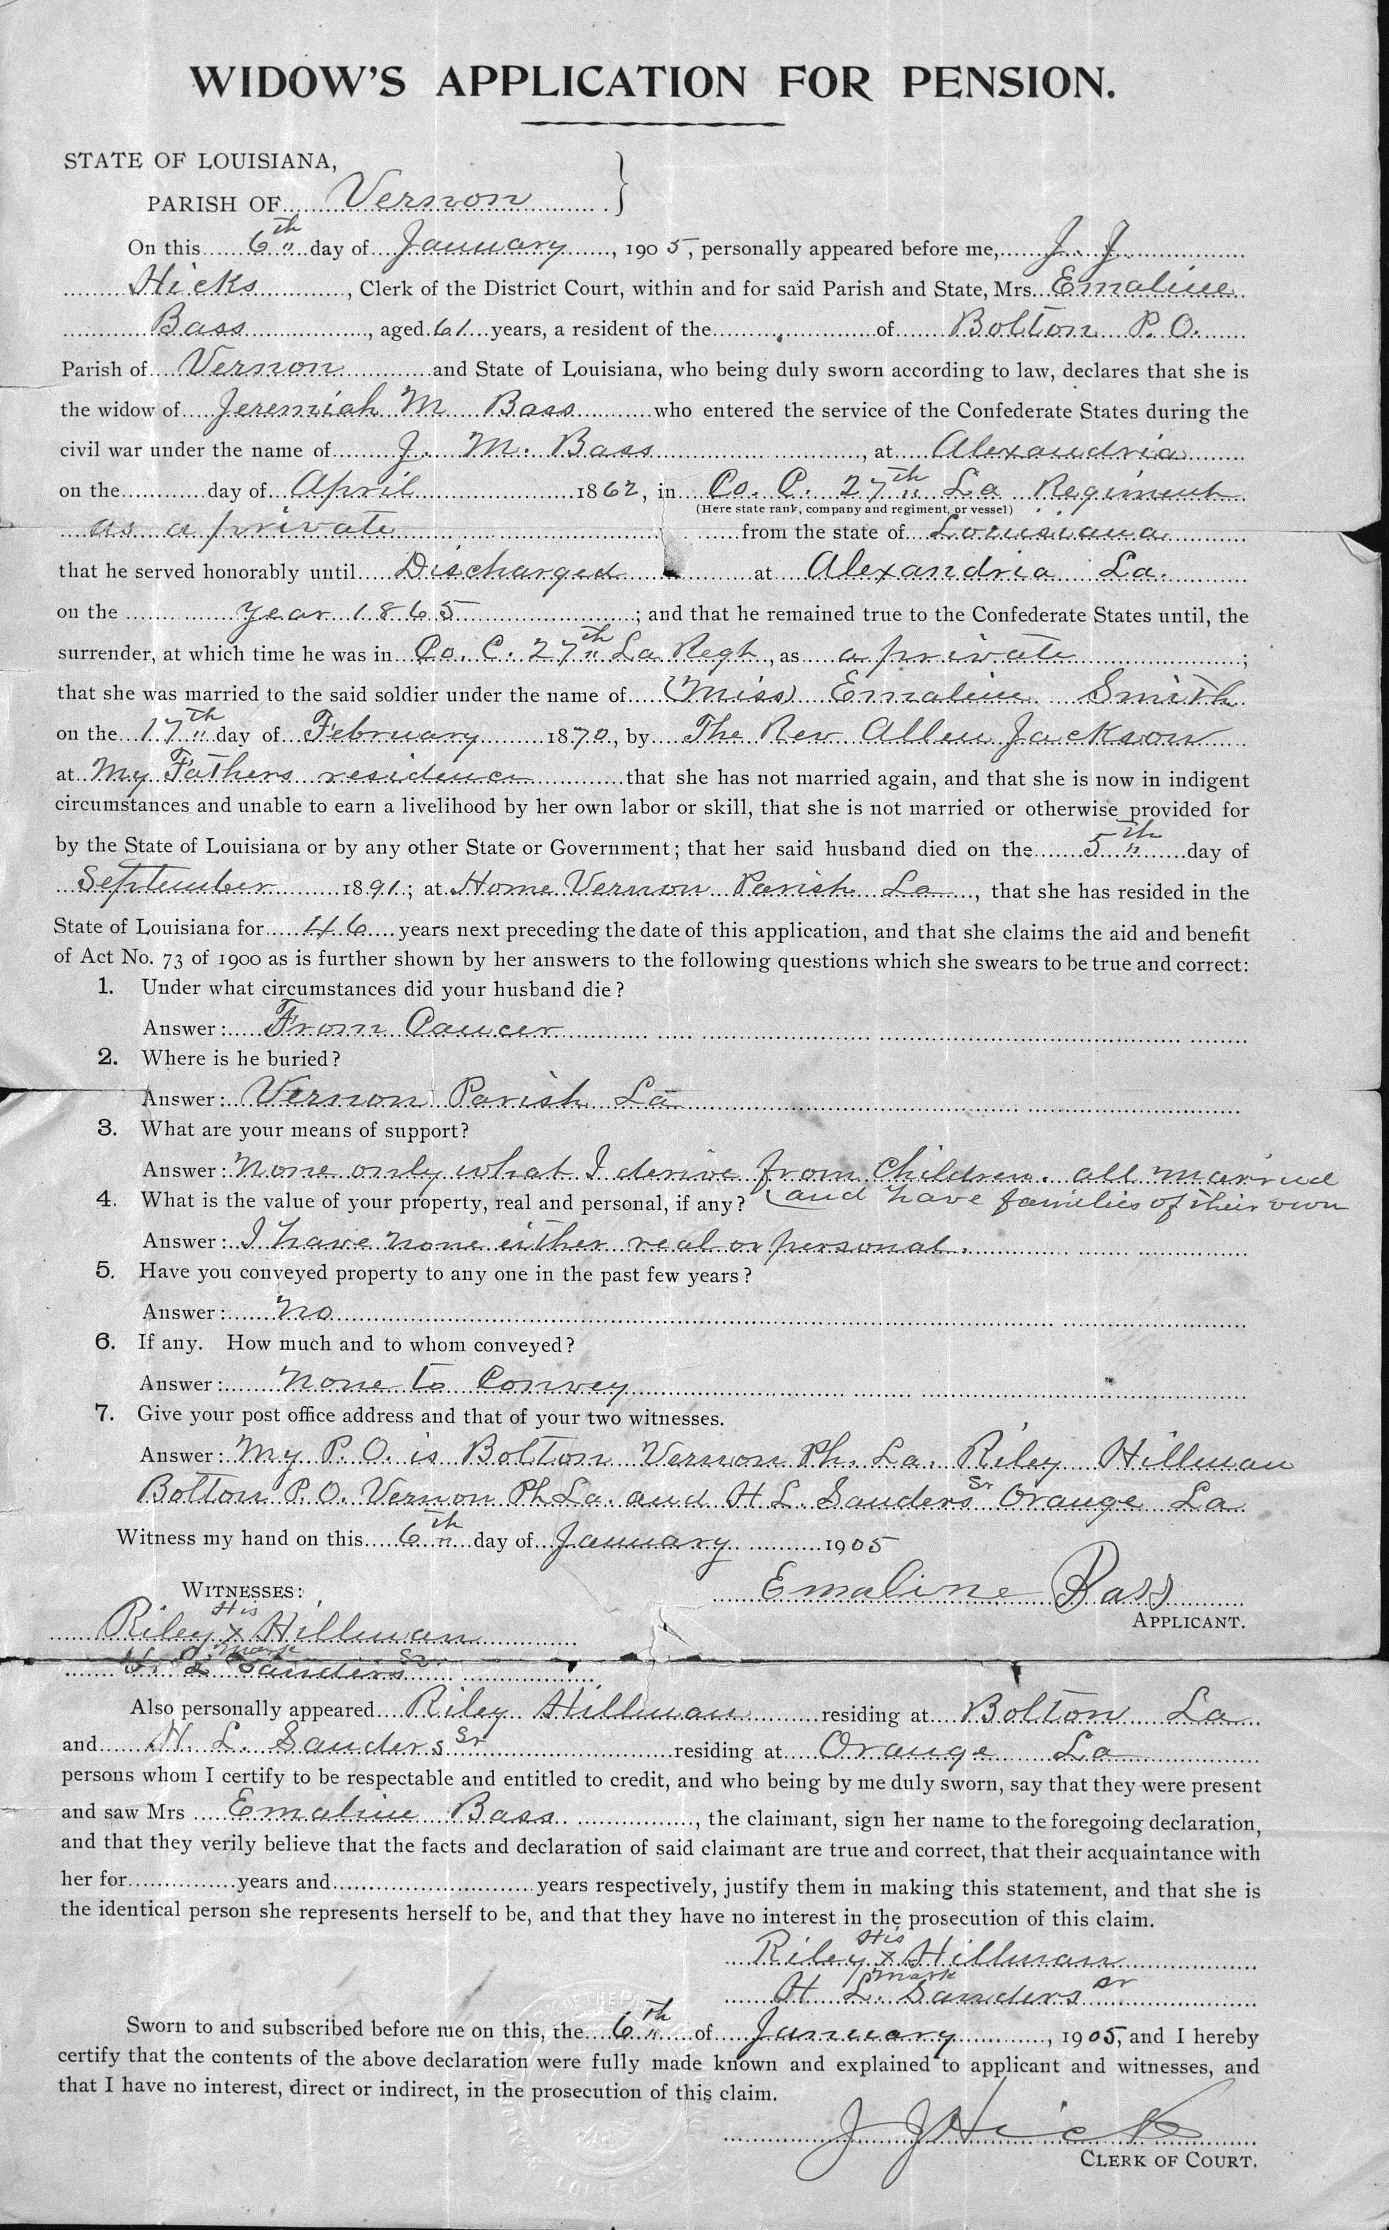 WIDOW'S APPLICATION FOR PENSION.
STATE OF LOUISIANA,
PARISH OF Vernon
On this 6th day of January, 1905, personally appeared before me, J. J.
Hicks, Clerk of the District Court, within and for said Parish and State, Mrs. Emaline
Bass, aged 61 years, a resident of the of Bolton P. O.
Parish of Vernon and State of Louisiana, who being duly sworn according to law, declares that she is
the widow of Jeremiah M Bass who entered the service of the Confederate States during the
civil war under the name of J. M. Bass, at Alexandria
on the day of April 1862, in Co. C. 27th La Regiment
(Here state rank, company and regiment, or vessel)
as a private from the state of Louisiana
that he served honorably until Discharged at Alexandria La.
on the year 1865; and that he remained true to the Confederate States until, the
surrender, at which time he was in Co. C. 27th La Regt, as a private;
that she was married to the said soldier under the name of (Miss) Emaline Smith
on the 17th day of February 1870, by The Rev Allen Jackson
at My Fathers residence that she has not married again, and that she is now in indigent
circumstances and unable to earn a livelihood by her own labor or skill, that she is not married or otherwise provided for
by the State of Louisiana or by any other State or Government; that her said husband died on the 5th day of
September 1891; at Home Vernon Parish La, that she has resided in the
State of Louisiana for 46 years next preceding the date of this application, and that she claims the aid and benefit
of Act No. 73 of 1900 as is further shown by her answers to the following questions which she swears to be true and correct:
1. Under what circumstances did your husband die?
Answer: From Cancer
2. Where is he buried?
Answer: Vernon Parish La
3. What are your means of support?
Answer: None only what I derive from Children. all married
and have families of their own
4. What is the value of your property, real and personal, if any?
Answer: I have none either real or personal.
5. Have you conveyed property to any one in the past few years?
Answer: No
6. If any. How much and to whom conveyed?
Answer: None to Convey
7. Give your post office address and that of your two witnesses.
Answer: My P. O. is Bolton Vernon Ph. La. Riley Hillman
Bolton P. O. Vernon Ph La. and H L. Sanders Sr Orange La
Witness my hand on this 6th day of January 1905
Emaline Bass
APPLICANT.
WITNESSES:
Riley His x mark Hillman
H. L Sanders Sr
Also personally appeared Riley Hillman residing at Bolton La
and H. L. Sanders Sr residing at Orange La
persons whom I certify to be respectable and entitled to credit, and who being by me duly sworn, say that they were present
and saw Mrs Emaline Bass, the claimant, sign her name to the foregoing declaration,
and that they verily believe that the facts and declaration of said claimant are true and correct, that their acquaintance with
her for years and years respectively, justify them in making this statement, and that she is
the identical person she represents herself to be, and that they have no interest in the prosecution of this claim.
Riley His x mark Hillman
H L. Sanders Sr
Sworn to and subscribed before me on this, the 6th of January, 1905, and I hereby
certify that the contents of the above declaration were fully made known and explained to applicant and witnesses, and
that I have no interest, direct or indirect, in the prosecution of this claim.
J J Hicks
CLERK OF COURT.